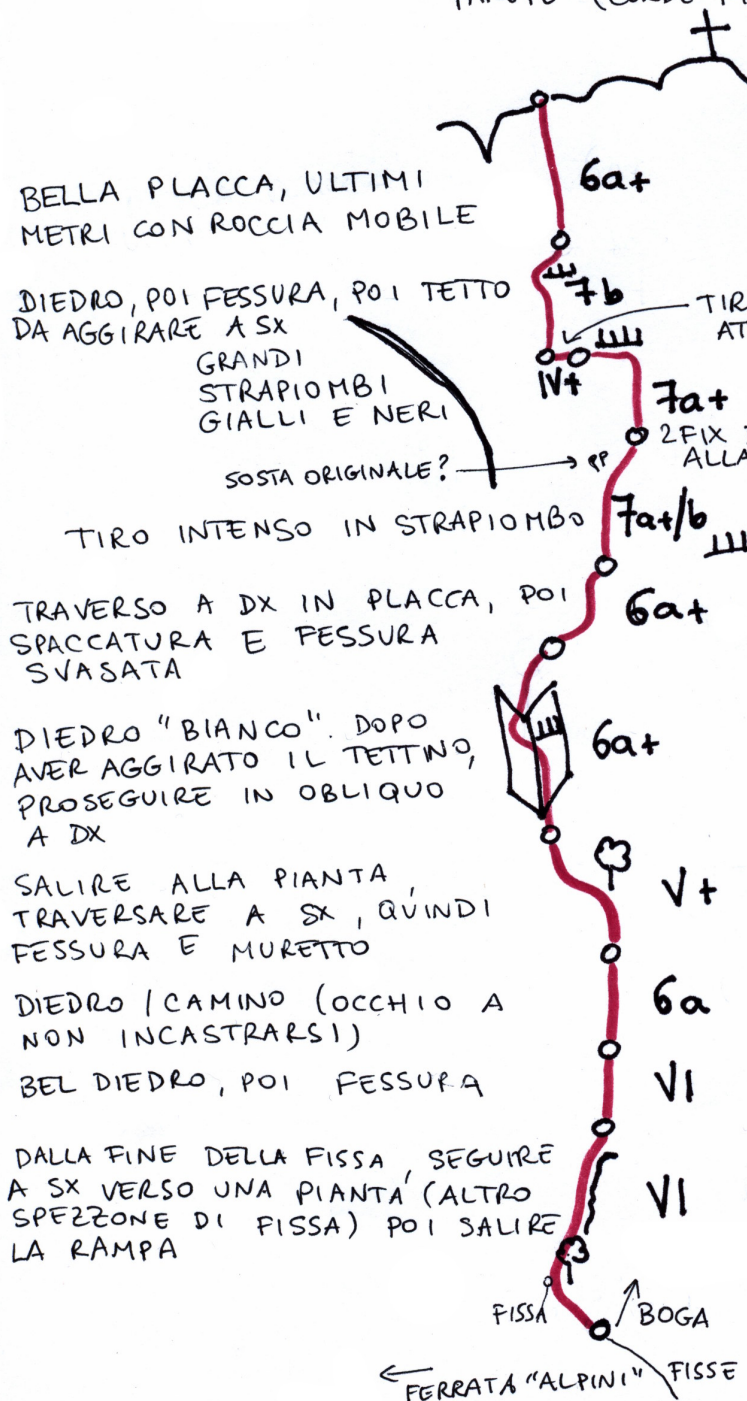 6a+
BELLA PLACCA, ULTIMI
METRI CON ROCCIA MOBILE
7b
DIEDRO, POI FESSURA, POI TETTO
DA AGGIRARE A SX
TIR
AT
GRANDI
STRAPIOMBI
GIALLI E NERI
IV+
7a+
2 FIX
ALLA
SOSTA ORIGINALE?
PP
TIRO INTENSO IN STRAPIOMBO
7a+/b
TRAVERSO A DX IN PLACCA, POI
SPACCATURA E FESSURA
SVASATA
6a+
DIEDRO "BIANCO". DOPO
AVER AGGIRATO IL TETTINO,
PROSEGUIRE IN OBLIQUO
A DX
6a+
SALIRE ALLA PIANTA,
TRAVERSARE A SX, QUINDI
FESSURA E MURETTO
V+
DIEDRO / CAMINO (OCCHIO A
NON INCASTRARSI)
6a
BEL DIEDRO, POI FESSURA
VI
DALLA FINE DELLA FISSA, SEGUIRE
A SX VERSO UNA PIANTA (ALTRO
SPEZZONE DI FISSA) POI SALIRE
LA RAMPA
VI
FISSA
BOGA
FERRATA "ALPINI"
FISSE